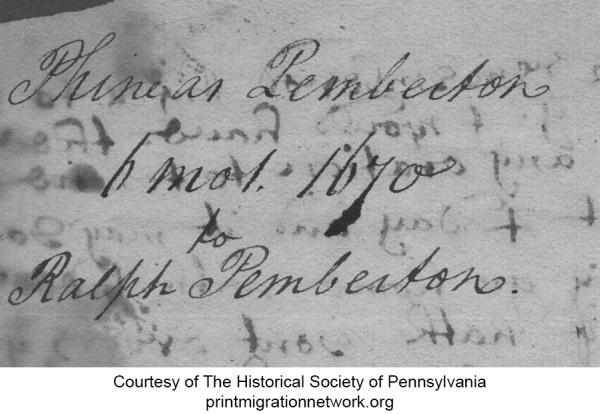 Phineas Pemberton
6 mot. 1670
to
Ralph Pemberton.
Courtesy of The Historical Society of Pennsylvania
printmigrationnetwork.org